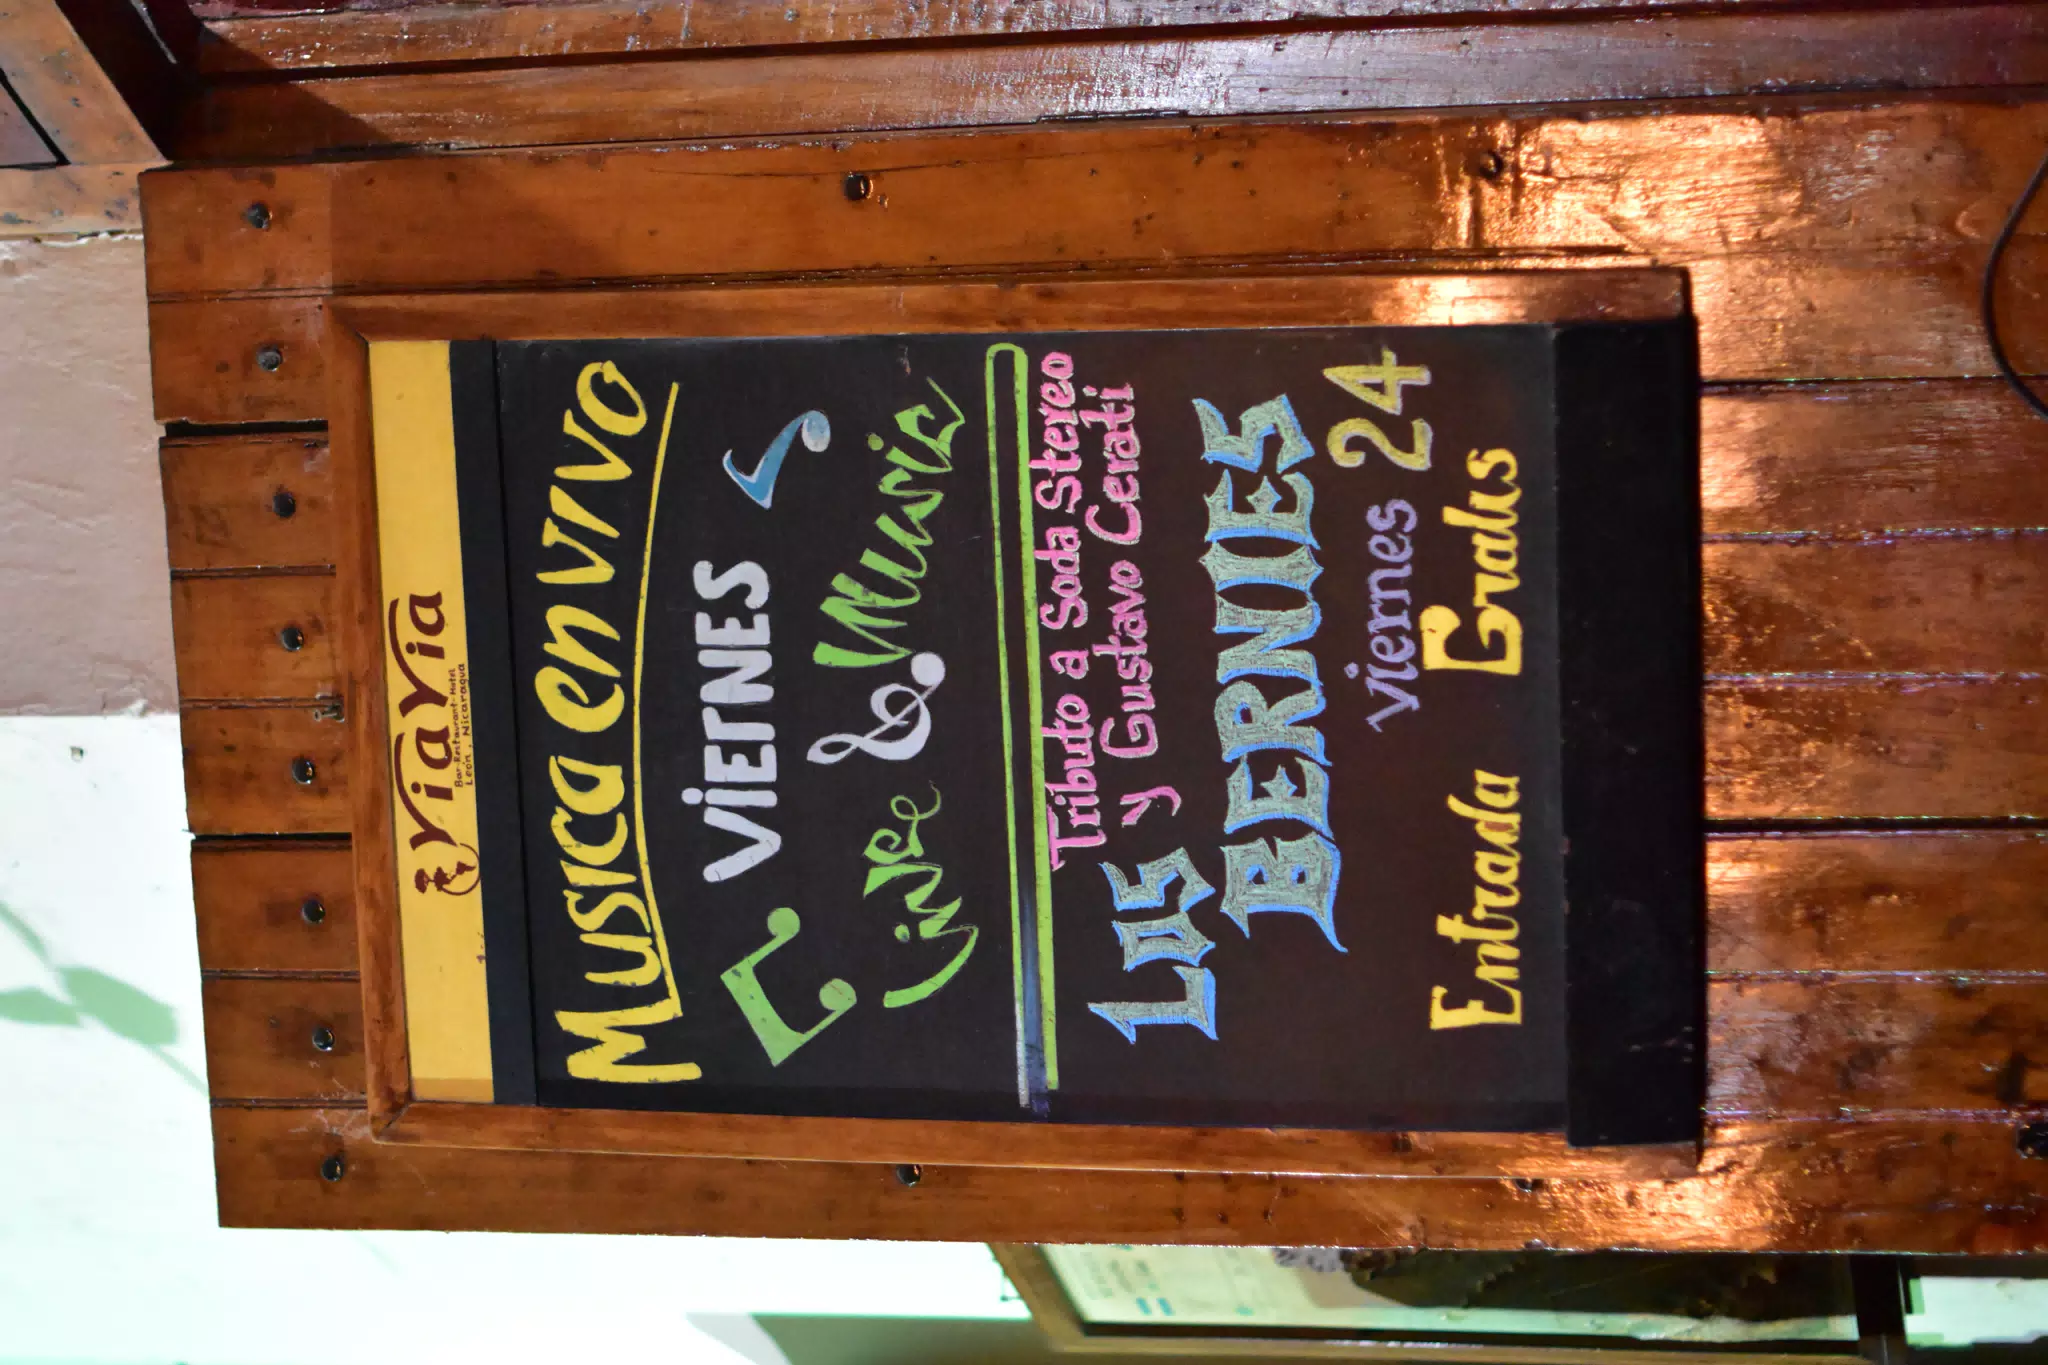 ViaVia
Bar-Restaurant-Hotel
León, Nicaragua
Musica en vivo
Viernes
Live & Music
Tributo a Soda Stereo
y Gustavo Cerati
Los
BERNIES
viernes 24
Entrada Gratis